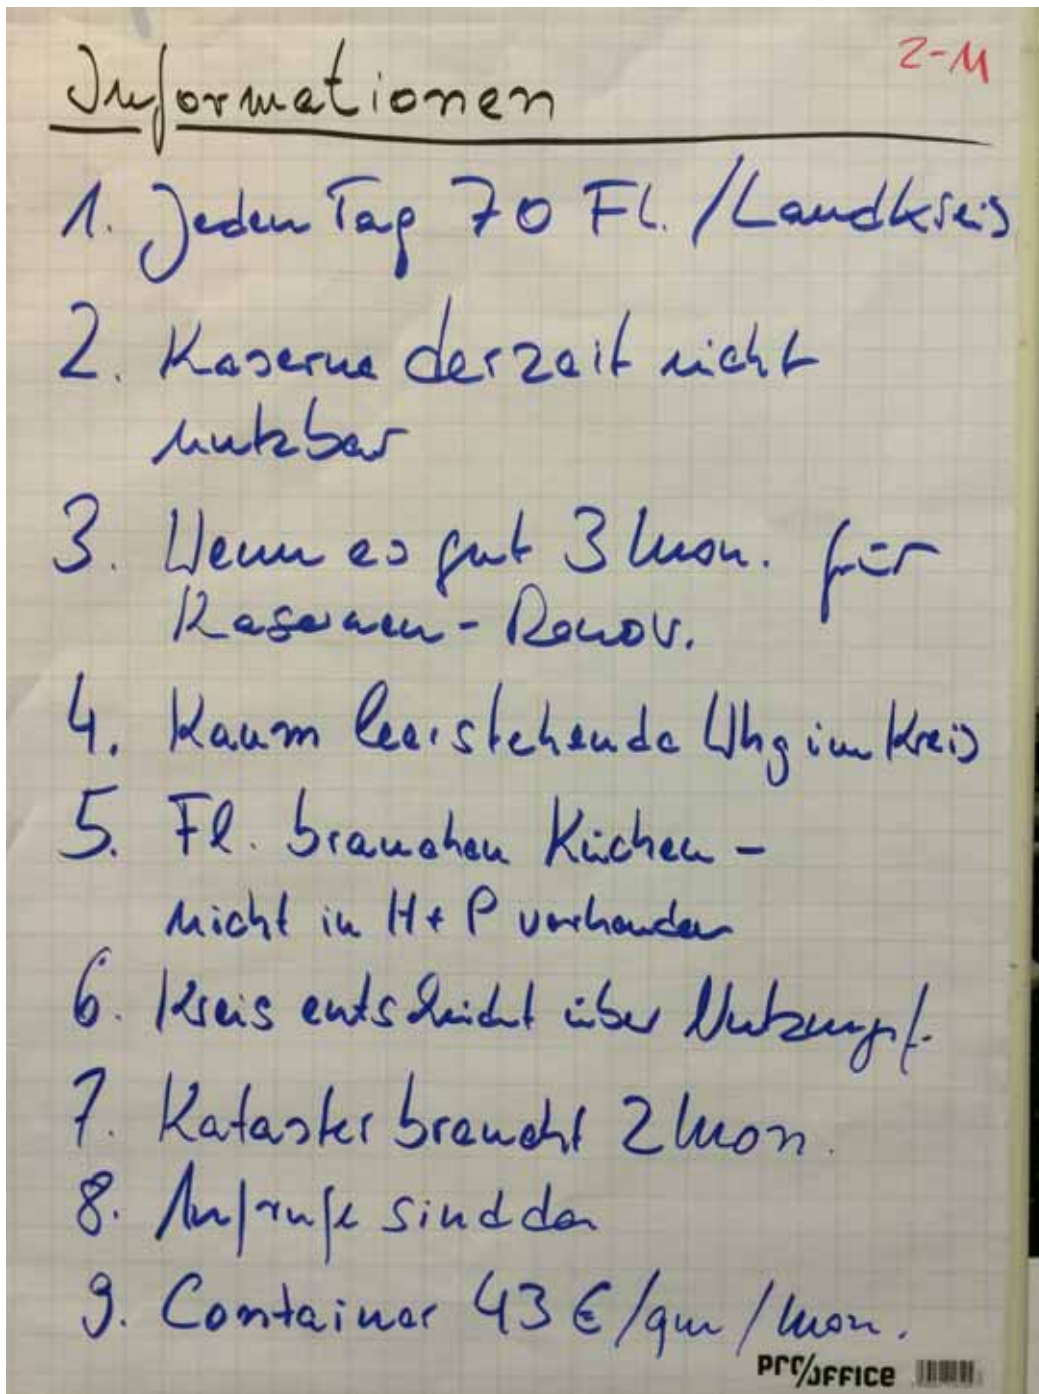 2-M
Informationen
1. Jeden Tag 70 Fl. /Landkreis
2. Kaserne derzeit nicht
nutzbar
3. Wenn es gut 3 Mon. für
Kasernen-Renov.
4. Kaum leerstehende Whg im Kreis
5. Fl. brauchen Küchen -
nicht in H + P vorhanden
6. Kreis entscheidet über
7. Kataster braucht 2 Mon.
8. sind da
9. Container 43 €/qm/Mon.
PRO/OFFICE